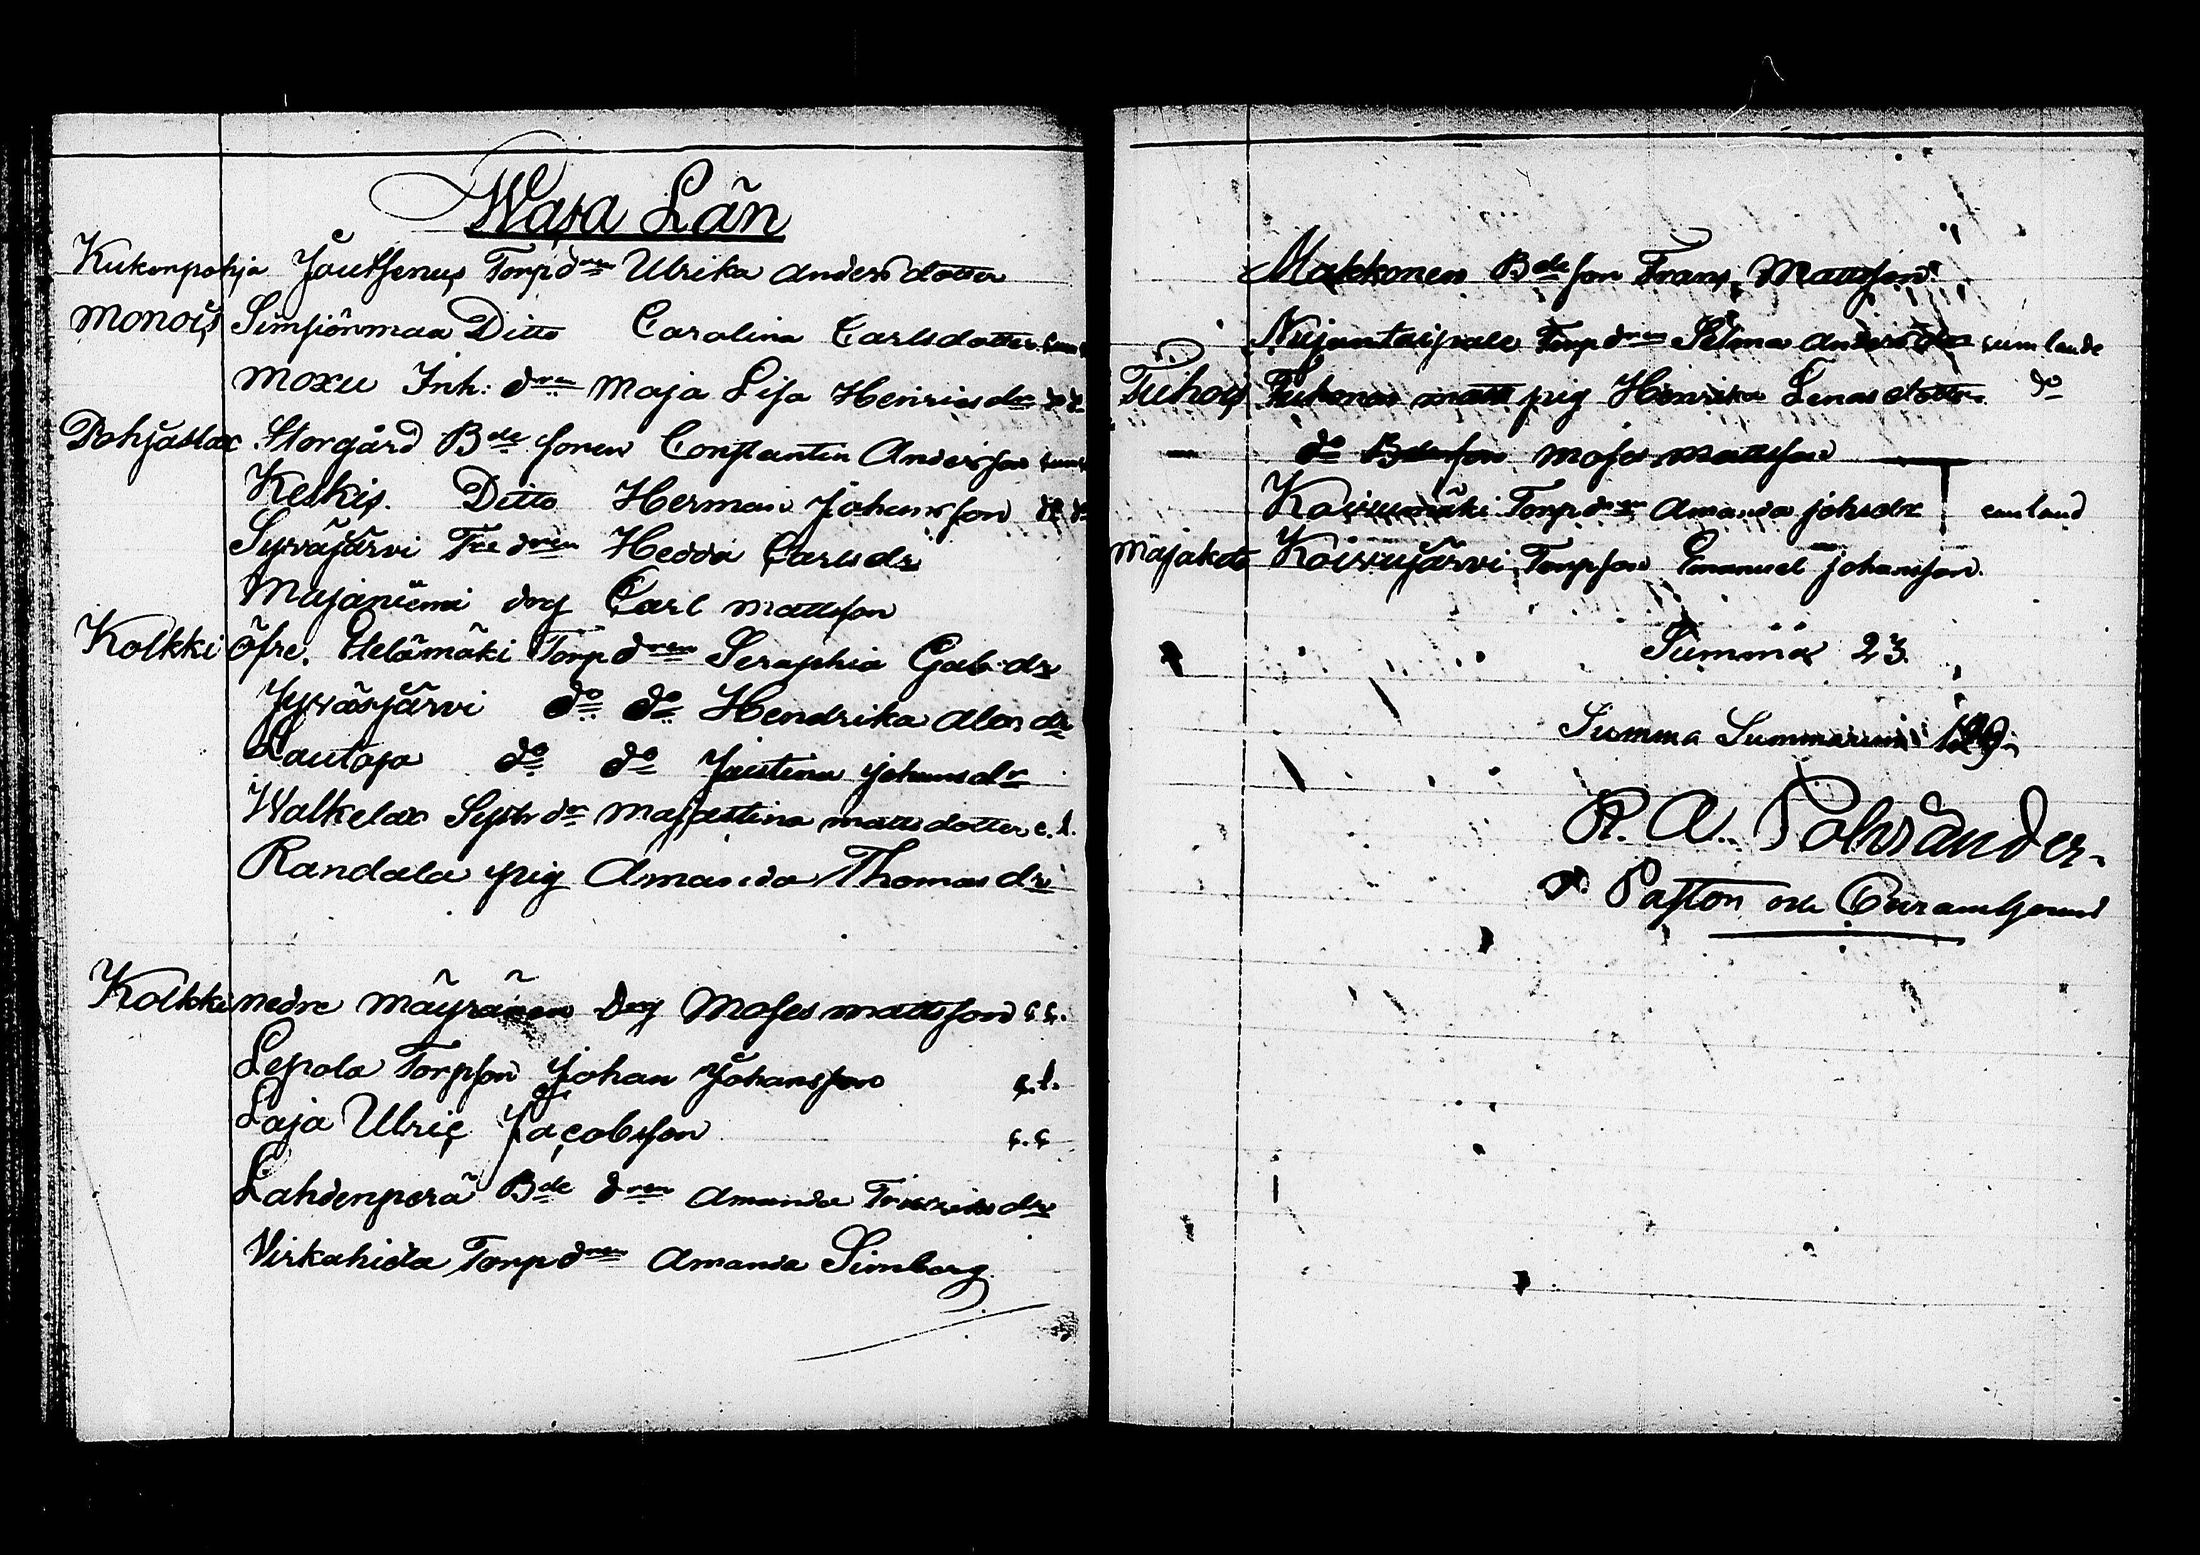 Wasa Län
Kukonpohja Joutsenus Torpdren Ulrika Andersdotter
Monois Simsiönmaa Ditto Carolina Carlsdotter
Moxu Inh: dren Maja Lisa Henricsdr
Pohjaslax Storgård Bde sonen Constantin Andersson
Keskis. Ditto Herman Johansson do do
Syväjärvi dren Hedda Carlsdr
Majaniemi drg Carl Mattsson
Kolkki öfre. Helämäki Torpdren Seraphia Gab:dr
Jyväsjärvi do do Hendrika dr
Lautaja do do Justina Johansdr
Walkelax dr Majastina Mattsdotter c. l.
Randala pig Amanda Thomasdr
Kolkki nedre Mäyränen drg Moses Mattsson c.c.
Lepola Torpson Johan Johansson c.l.
Laja Ulric Jacobsson c.c
Lahdenperä Bde dren Amanda dr
Virkahida Torpdren Amanda Simberg
Makkonen Bde son Frans Mattsson
Torpdren Selma Andersdr
Tuhois pig Henrika Enasdotter do
— do Bdeson Moses Mattsson
Koivumäki Torpdr Amanda Johsdr
Majakoto Koivujärvi Torpson Emanuel Johansson.
Summa 23.
Summa Summarum
K. A. Pohjander.
Pastor och